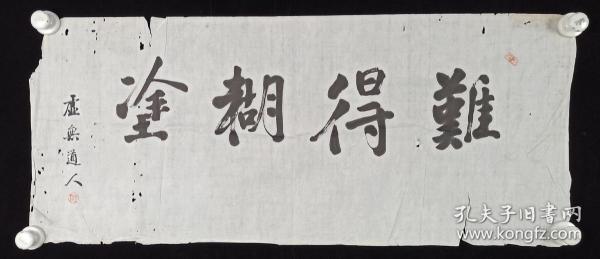 難得糊塗
虛無道人
孔夫子旧书网
www.kongfz.com